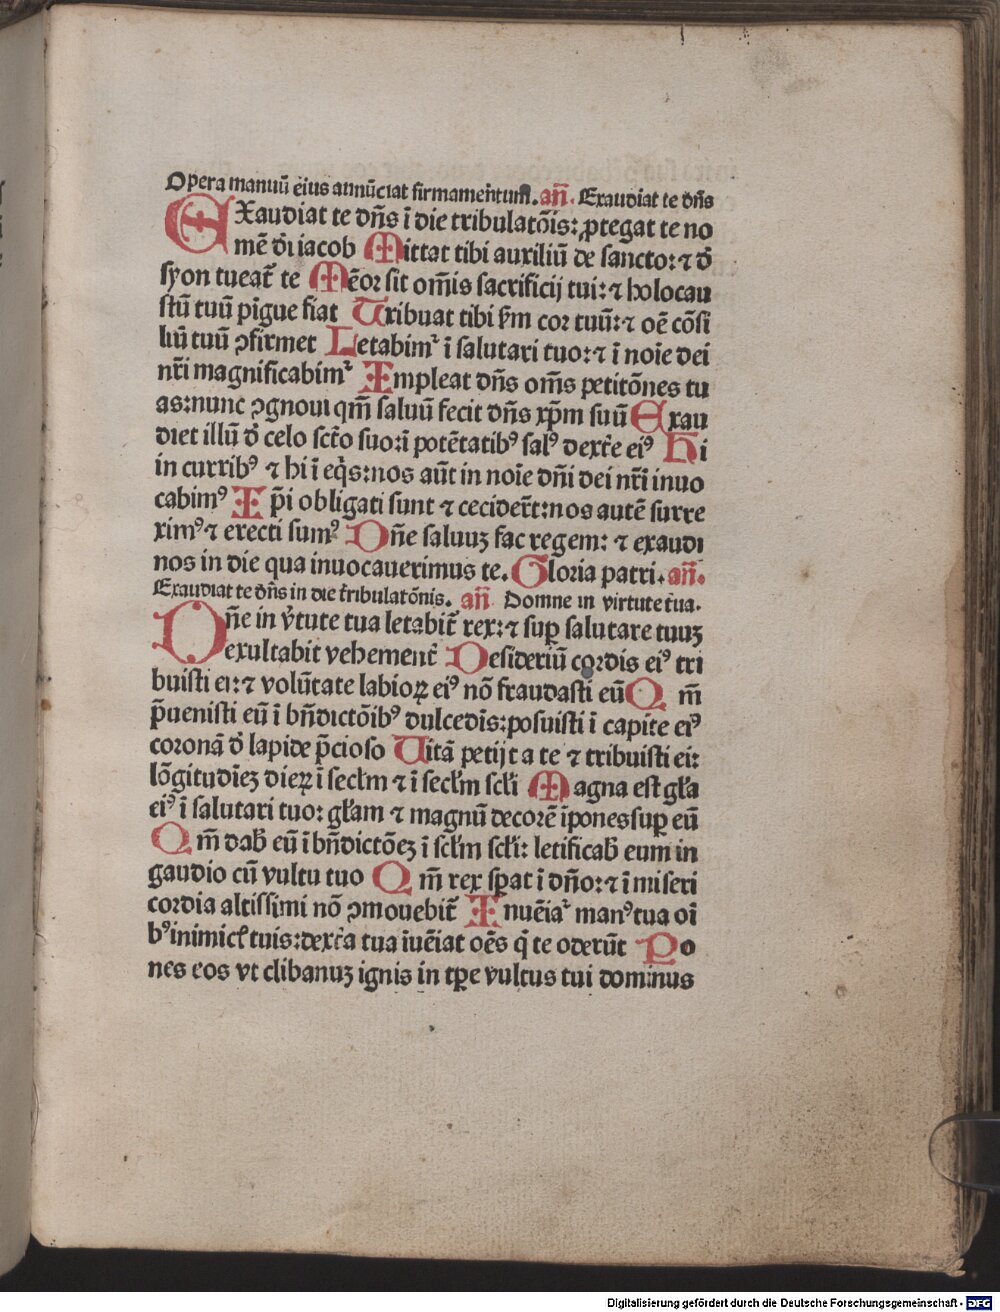 Opera manuū eius annūciat firmamentum. añ. Exaudiat te dn̄s
EXaudiat te dn̄s ī die tribulatōis: ꝓtegat te no
mē dī iacob Mittat tibi auxiliū de sancto: ⁊ đ
syon tueat̄ te Mēor sit om̄is sacrificij tui: ⁊ holocau
stū tuū pīgue fiat Tribuat tibi ẜm cor tuū: ⁊ oē cōsi
liū tuū ꝯfirmet Letabimꝰ ī salutari tuo: ⁊ ī noīe dei
nr̄i magnificabimꝰ Impleat dn̄s om̄s petitōnes tu
as: nunc ꝯgnoui qm̄ saluū fecit dn̄s xp̄m suū Exau
diet illū đ celo sct̄o suo: ī potētatibꝰ salꝰ dext̄e eiꝰ Hi
in curribꝰ ⁊ hi ī eq̄s: nos aūt in noīe dn̄i dei nr̄i inuo
cabimꝰ Ip̄i obligati sunt ⁊ cecider̄t: nos autē surre
ximꝰ ⁊ erecti sumꝰ Dn̄e saluuꝫ fac regem: ⁊ exaudi
nos in die qua inuocauerimus te. Gloria patri. añ.
Exaudiat te dn̄s in die t̄ribulatōnis. añ Domne in virtute tua.
Dn̄e in v̄tute tua letabit̄ rex: ⁊ suꝑ salutare tuuꝫ
exultabit vehement̄ Desideriū cordis eiꝰ tri
buisti ei: ⁊ volūtate labioꝝ eiꝰ nō fraudasti eū Qm̄
p̄uenisti eū ī bn̄dictōibꝰ dulcedīs: posuisti ī capite eiꝰ
coronā đ lapide p̄cioso Uitā petijt a te ⁊ tribuisti ei:
lōgitudīeꝫ dieꝝ ī secl̄m ⁊ ī secl̄m scl̄i Magna est gl̄a
eiꝰ ī salutari tuo: gl̄am ⁊ magnū decorē īpones suꝑ eū
Qm̄ dab̄ eū ī bn̄dictōeꝫ ī scl̄m scl̄i: letificab̄ eum in
gaudio cū vultu tuo Qm̄ rex sꝑat ī dn̄o: ⁊ ī miseri
cordia altissimi nō ꝯmouebit̄ Inuēiaꝰ manꝰ tua oī
bꝰ inimicꝭ tuis: dext̄a tua iuēiat oēs q̄ te oderūt Po
nes eos vt clibanuꝫ ignis in tꝑe vultus tui dominus
Digitalisierung gefördert durch die Deutsche Forschungsgemeinschaft - DFG